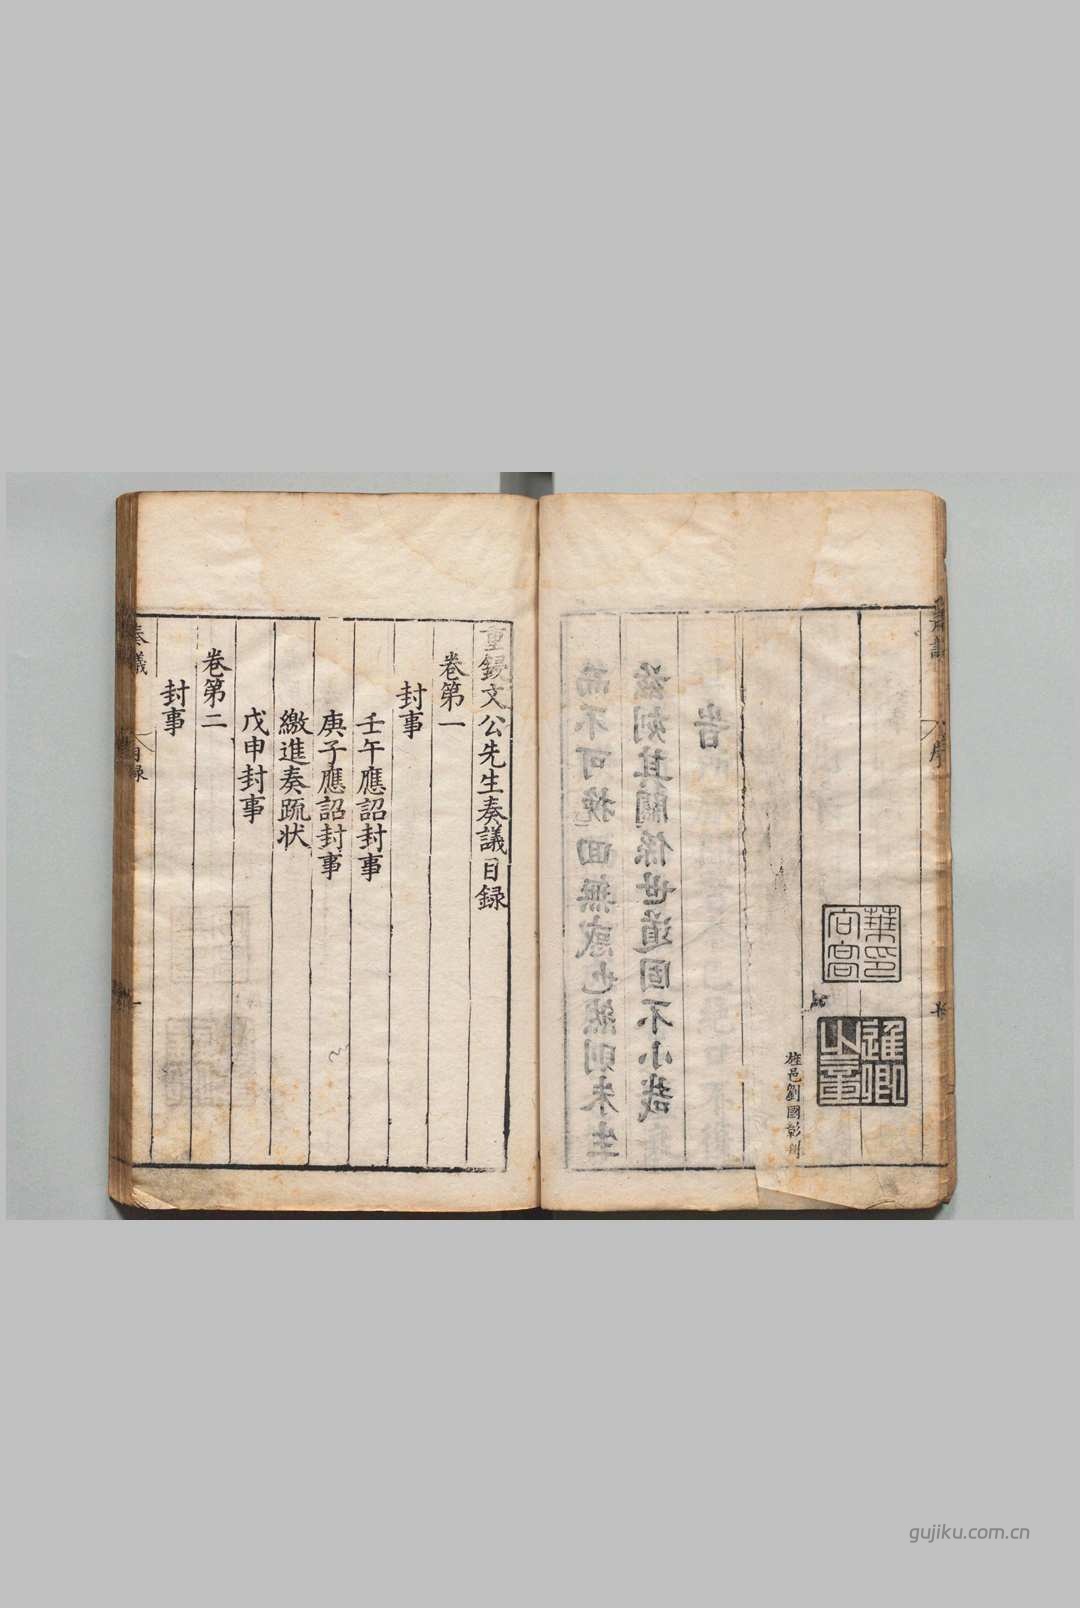 葉印
向高
進卿
之章
旌邑劉國彰刻
茲刻其關係世道固不小哉
而不可挽回無惑也然則朱生
重鋟文公先生奏議目録
卷第一
封事
壬午應詔封事
庚子應詔封事
繳進奏疏狀
戊申封事
卷第二
封事
奏議
目録
一
gujiku.com.cn